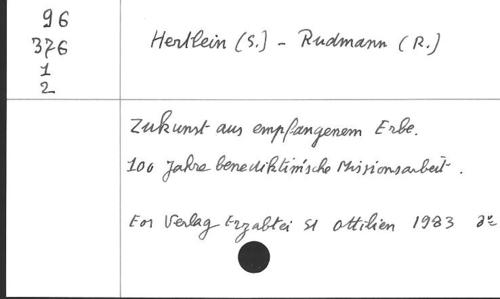 96
376
1
2
Hertlein (S.) - Rudmann (R.)
Zukunst aus empfangenem Erbe.
100 Jahre benediktinische Missionsarbeit.
Eos Verlag Erzabtei St Ottilien 1983